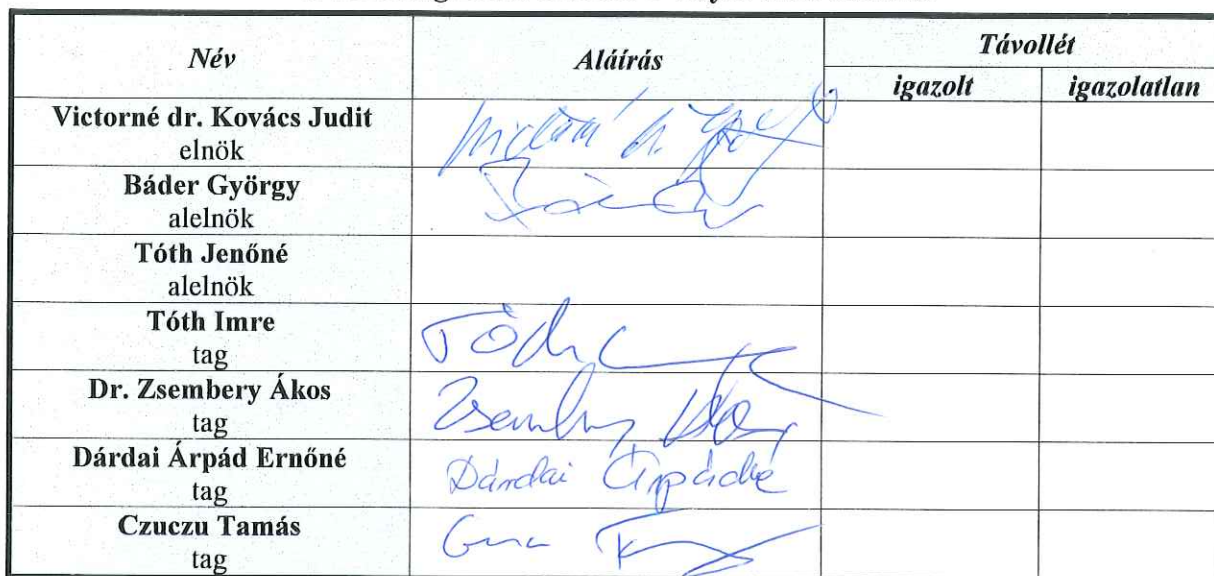 Név Aláírás Távollét
igazolt igazolatlan
Victorné dr. Kovács Judit
elnök
Báder György
alelnök
Tóth Jenőné
alelnök
Tóth Imre
tag
Dr. Zsembery Ákos Zsembery Ákos
tag
Dárdai Árpád Ernőné Dárdai Árpádné
tag
Czuczu Tamás
tag